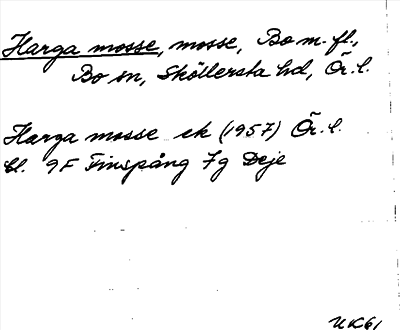 Harga mosse, mosse, Bo m. fl.,
Bo sn, Sköllersta hd, Ör. l.
Harga mosse ek (1957) Ör. l.
bl. 9F Finspång 7g Deje
UK61